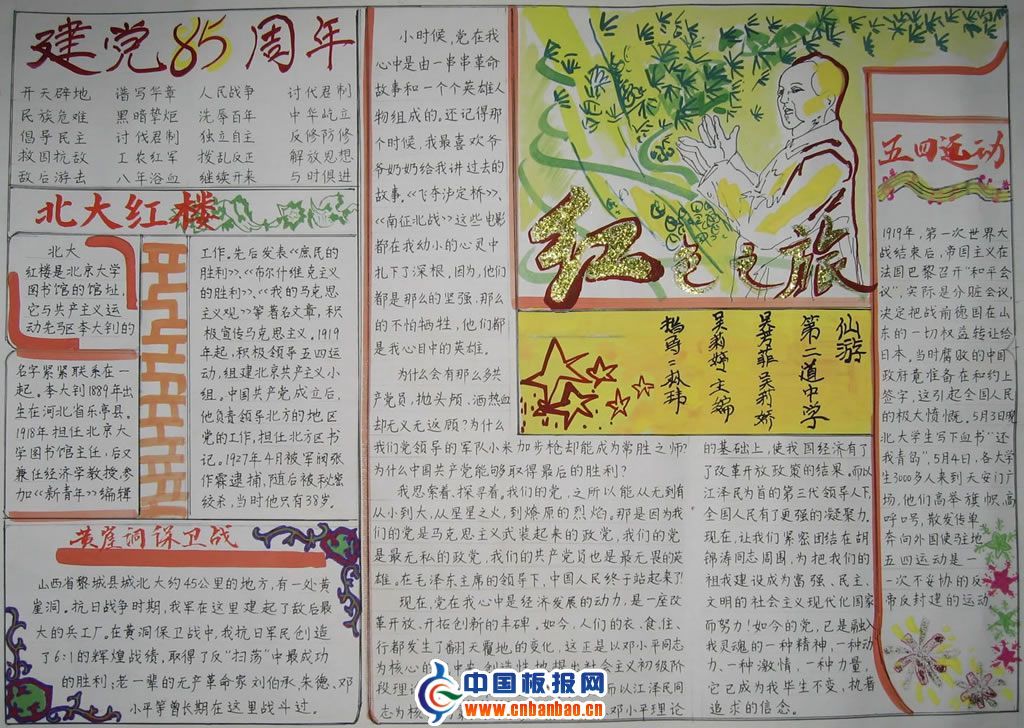 建党85周年
开天辟地 谱写华章 人民战争 讨伐君制
民族危难 黑暗擎炬 洗辱百年 中华屹立
倡导民主 讨伐君制 独立自主 反修防修
救国抗敌 工农红军 拨乱反正 解放思想
敌后游击 八年浴血 继续开来 与时俱进
北大红楼
北大
红楼是北京大学
图书馆的馆址,
它与共产主义运
动老驱李大钊的
名字紧紧联系在一
起。李大钊1889年出
生在河北省乐亭县。
1918年担任北京大
学图书馆主任,后又
兼任经济学教授,参
加《新青年》编辑
工作。先后发表《庶民的
胜利》、《布尔什维克主义
的胜利》、《我的马克思
主义观》等著名文章,积
极宣传马克思主义。1919
年起,积极领导五四运
动,组建北京共产主义小
组。中国共产党成立后,
他负责领导北方的地区
党的工作,担任北方区书
记。1927年4月被军阀张
作霖逮捕,随后被秘密
绞杀,当时他只有38岁。
黄崖洞保卫战
山西省黎城县城北大约45公里的地方,有一处黄
崖洞。抗日战争时期,我军在这里建起了敌后最
大的兵工厂。在黄洞保卫战中,我抗日军民创造
了6:1的辉煌战绩,取得了反“扫荡”中最成功
的胜利;老一辈的无产革命家刘伯承、朱德、邓
小平等曾长期在这里战斗过。
小时候,党在我
心中是由一串串革命
故事和一个个英雄人
物组成的。还记得那
个时候,我最喜欢爷
爷奶奶给我讲过去的
故事,《飞夺泸定桥》、
《南征北战》这些电影
都在我幼小的心灵中
扎下了深根,因为,他们
都是那么的坚强,那么
的不怕牺牲,他们都
是我心目中的英雄。
为什么会有那么多共
产党员,抛头颅、洒热血
却无义无返顾?为什么
我们党领导的军队小米加步枪却能成为常胜之师?
为什么中国共产党能够取得最后的胜利?
我思索着、探寻着,我们的党,之所以能从无到有
从小到大,从星星之火,到燎原的烈焰。那是因为我
们的党是马克思主义武装起来的政党,我们的党
是最无私的政党,我们的共产党员也是最无畏的英
雄。在毛泽东主席的领导下,中国人民终于站起来了!
现在,党在我心中是经济发展的动力,是一座改
革开放、开拓创新的丰碑。如今,人们的衣、食、住、
行都发生了翻天覆地的变化,这正是以邓小平同志
为核心的
提出社会主义初级阶
段理
而以江泽民同
志为核
邓小平理论
红色之旅
仙游
第二道中学
吴若菲 吴莉娇
吴莉婷 主编
的基础上,使我国经济有了
了改革开放政策的结果。而以
江泽民为首的第三代领导人下,
全国人民有了更强的凝聚力。
现在,让我们紧密团结在胡
锦涛同志周围,为把我们的
祖我建设成为富强、民主、
文明的社会主义现代化国家
而努力!如今的党,已是融入
我灵魂的一种精神,一种动
力、一种激情、一种力量。
它已成为我毕生不变、执着
追求的信念。
五四运动
1919年,第一次世界大
战结束后,帝国主义在
法国巴黎召开“和平会
议”,实际是分赃会议,
决定把战前德国在山
东的一切权益转让给
日本。当时腐败的中国
政府竟准备在和约上
签字,这引起全国人民
的极大愤慨。5月3日晚
北大学生写下血书“还
我青岛”,5月4日,各大学
生3000多人来到天安门广
场,他们高举旗帜,高
呼口号,散发传单
奔向外国使驻地
五四运动是一
一次不妥协的反
帝反封建的运动
中国板报网
www.cnbanbao.cn